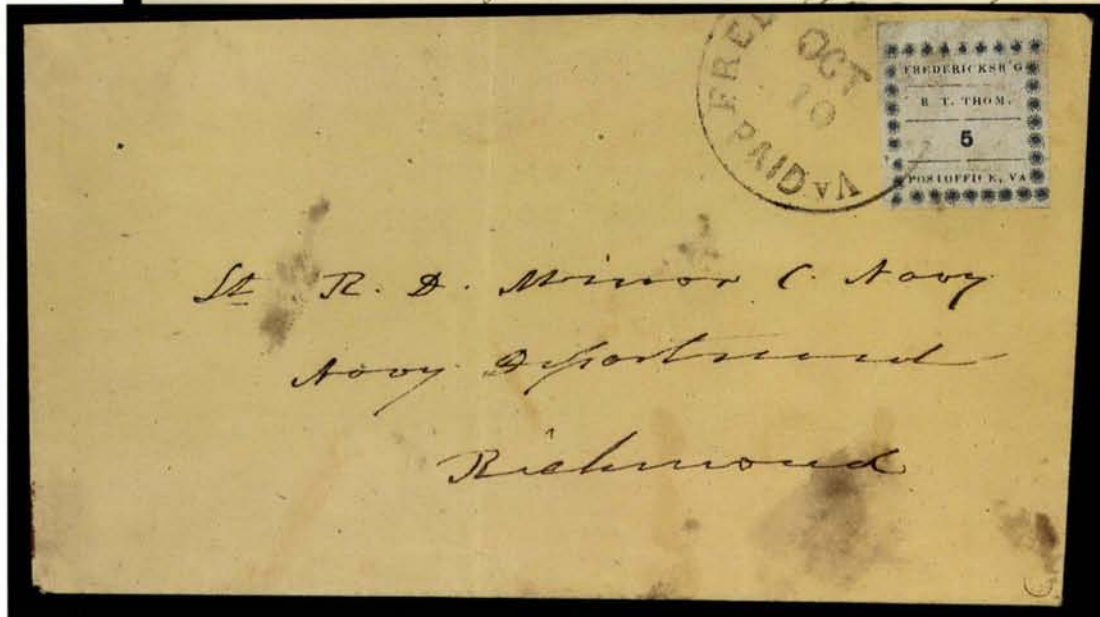 FRE
OCT
10
PAID
VA
FREDERICKSB'G
R. T. THOM.
5
POSTOFFICE, VA
Lt R. D. Minor C. Navy
Navy Department
Richmond